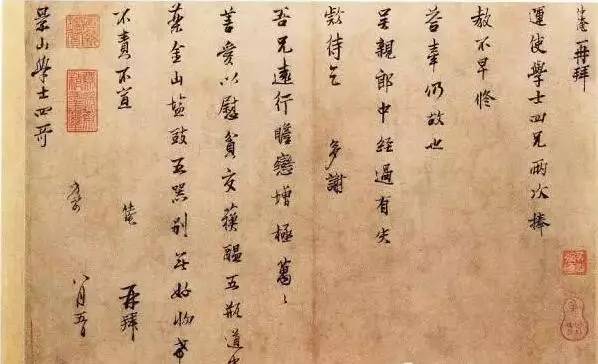 淹再拜
運使學士四兄兩次捧
教不早修
答牽仍故也
吳親郎中經過有失
款待乞 多謝
吾兄遠行瞻戀增極萬〻
善愛以慰貧交蘇醞五瓶道中
藥金山鹽豉五器別無好物希
不責不宣 淹 再拜
八月五日
景山學士四哥